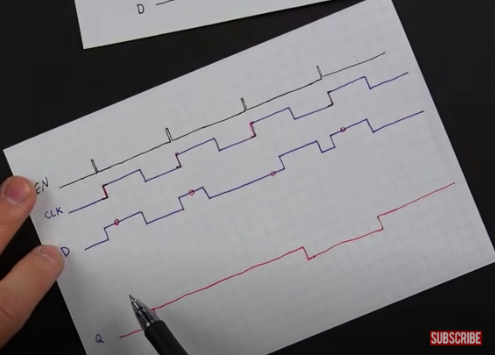 D
EN
CLK
D
Q
SUBSCRIBE